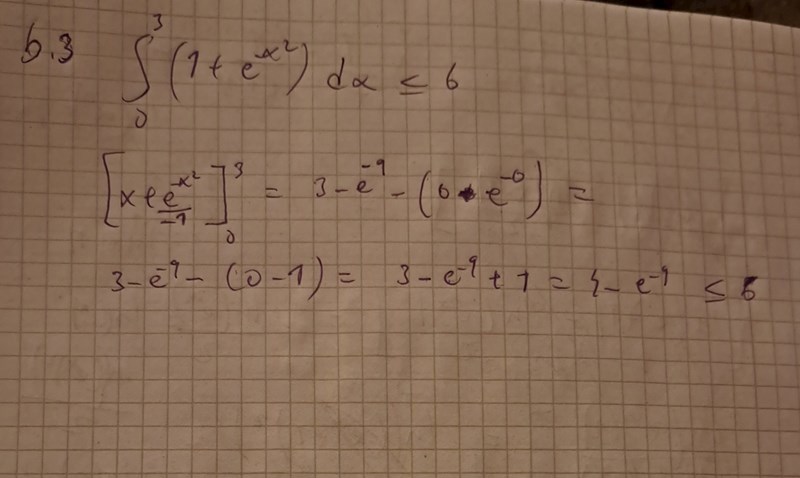 6.3 ∫₀³ (1 + e^{-x²}) dx ≤ 6
[x + e^{-x²}/-1]₀³ = 3 - e^{-9} - (0 - e^{-0}) =
3 - e^{-9} - (0 - 1) = 3 - e^{-9} + 1 = 4 - e^{-9} ≤ 6